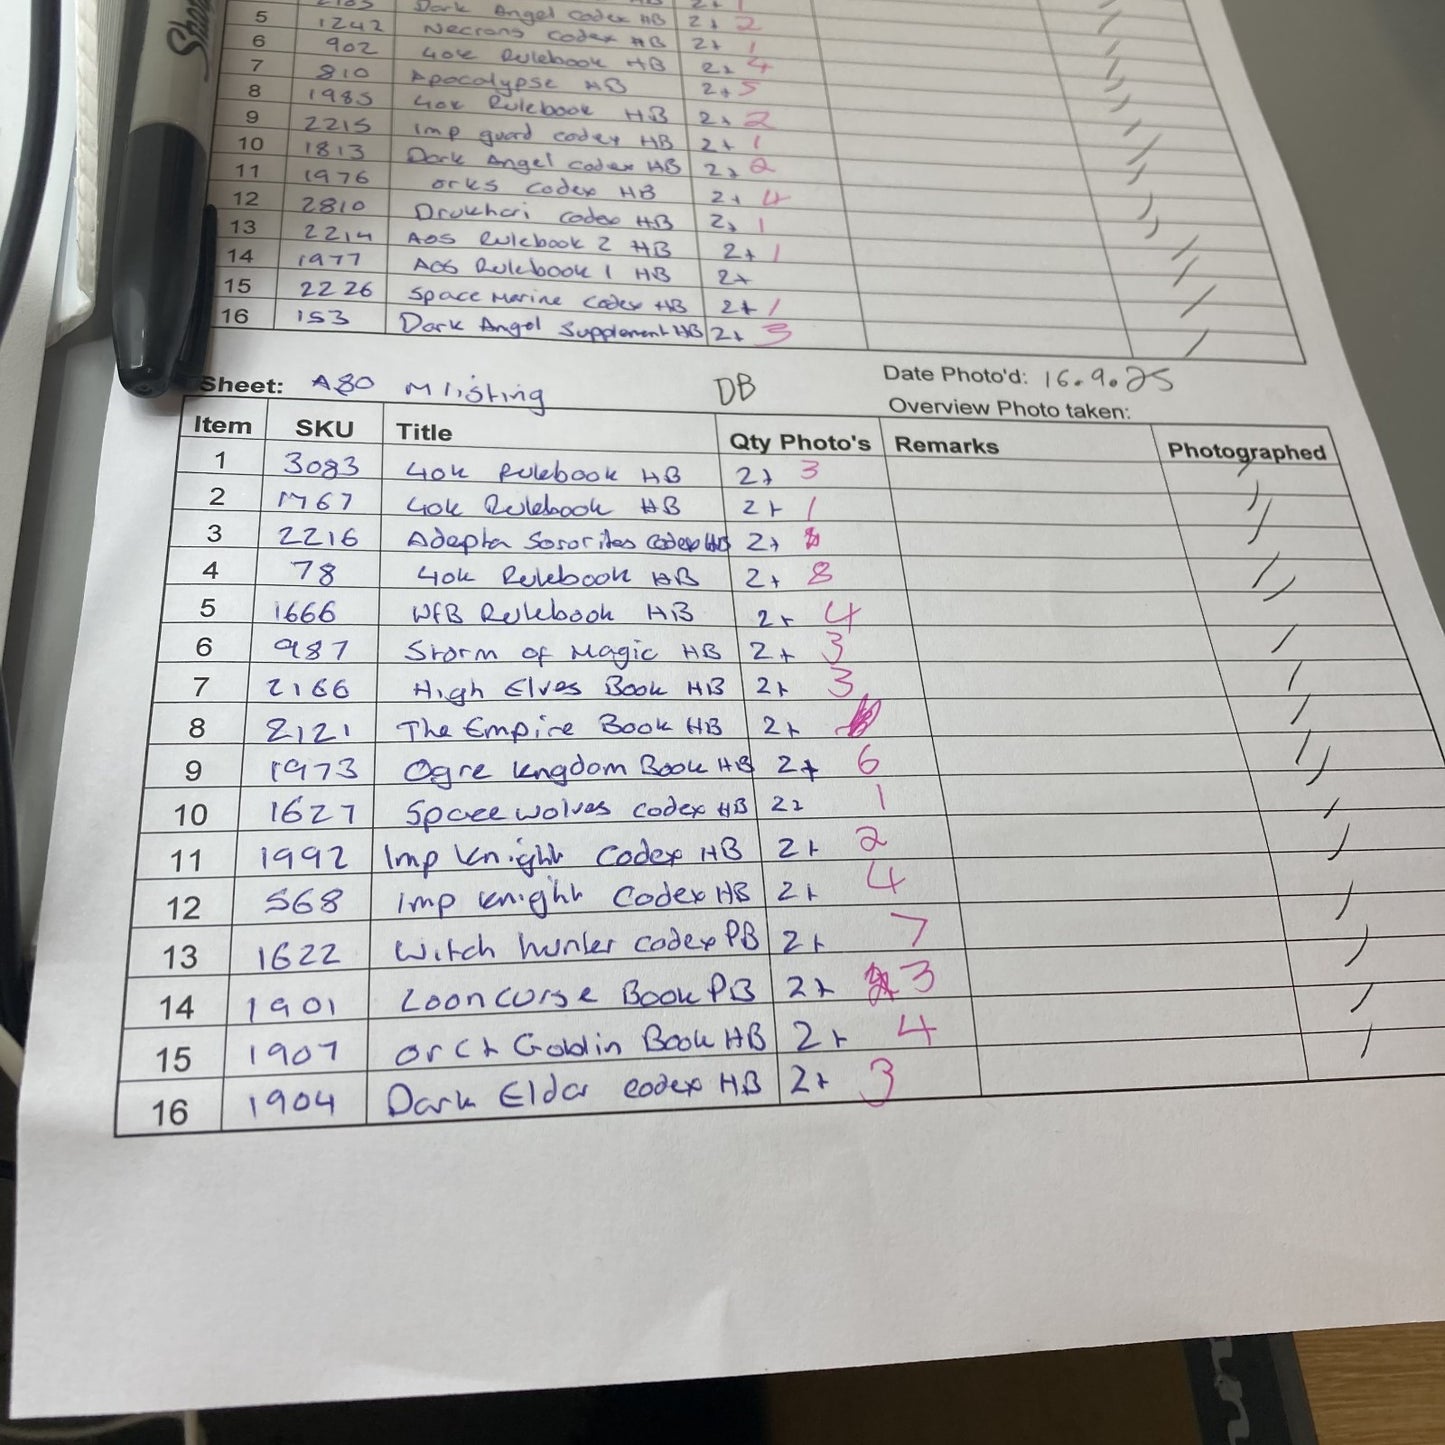 Dark Angel Codex HB 2+ 1
5 1242 Necrons Codex HB 2+ 2
6 902 40k Rulebook HB 2+ 1
7 810 Apocalypse HB 2+ 4
8 1985 40k Rulebook HB 2+ 5
9 2215 Imp guard codex HB 2+ 2
10 1813 Dark Angel codex HB 2+ 1
11 1976 orks codex HB 2+ 2
12 2810 Drukhari codex HB 2+ 4
13 2214 AOS Rulebook 2 HB 2+ 1
14 1977 AOS Rulebook 1 HB 2+ 1
15 2226 Space Marine Codex HB 2+ 1
16 153 Dark Angel Supplement HB 2+ 3
Sheet: A80 M listing DB Date Photo'd: 16.9.25
Overview Photo taken:
Item SKU Title Qty Photo's Remarks Photographed
1 3083 40k Rulebook HB 2+ 3
2 1767 40k Rulebook HB 2+ 1
3 2216 Adepta Sororitas Codex HB 2+
4 78 40k Rulebook HB 2+ 8
5 1666 WFB Rulebook HB 2+ 4
6 987 Storm of Magic HB 2+ 3
7 2166 High Elves Book HB 2+ 3
8 2121 The Empire Book HB 2+
9 1973 Ogre kngdom Book HB 2+ 6
10 1627 Space wolves codex HB 2+ 1
11 1992 Imp Knight Codex HB 2+ 2
12 568 Imp Knight Codex HB 2+ 4
13 1622 Witch hunter codex PB 2+ 7
14 1901 Looncurse Book PB 2+ 3
15 1907 Orc + Goblin Book HB 2+ 4
16 1904 Dark Eldar codex HB 2+ 3